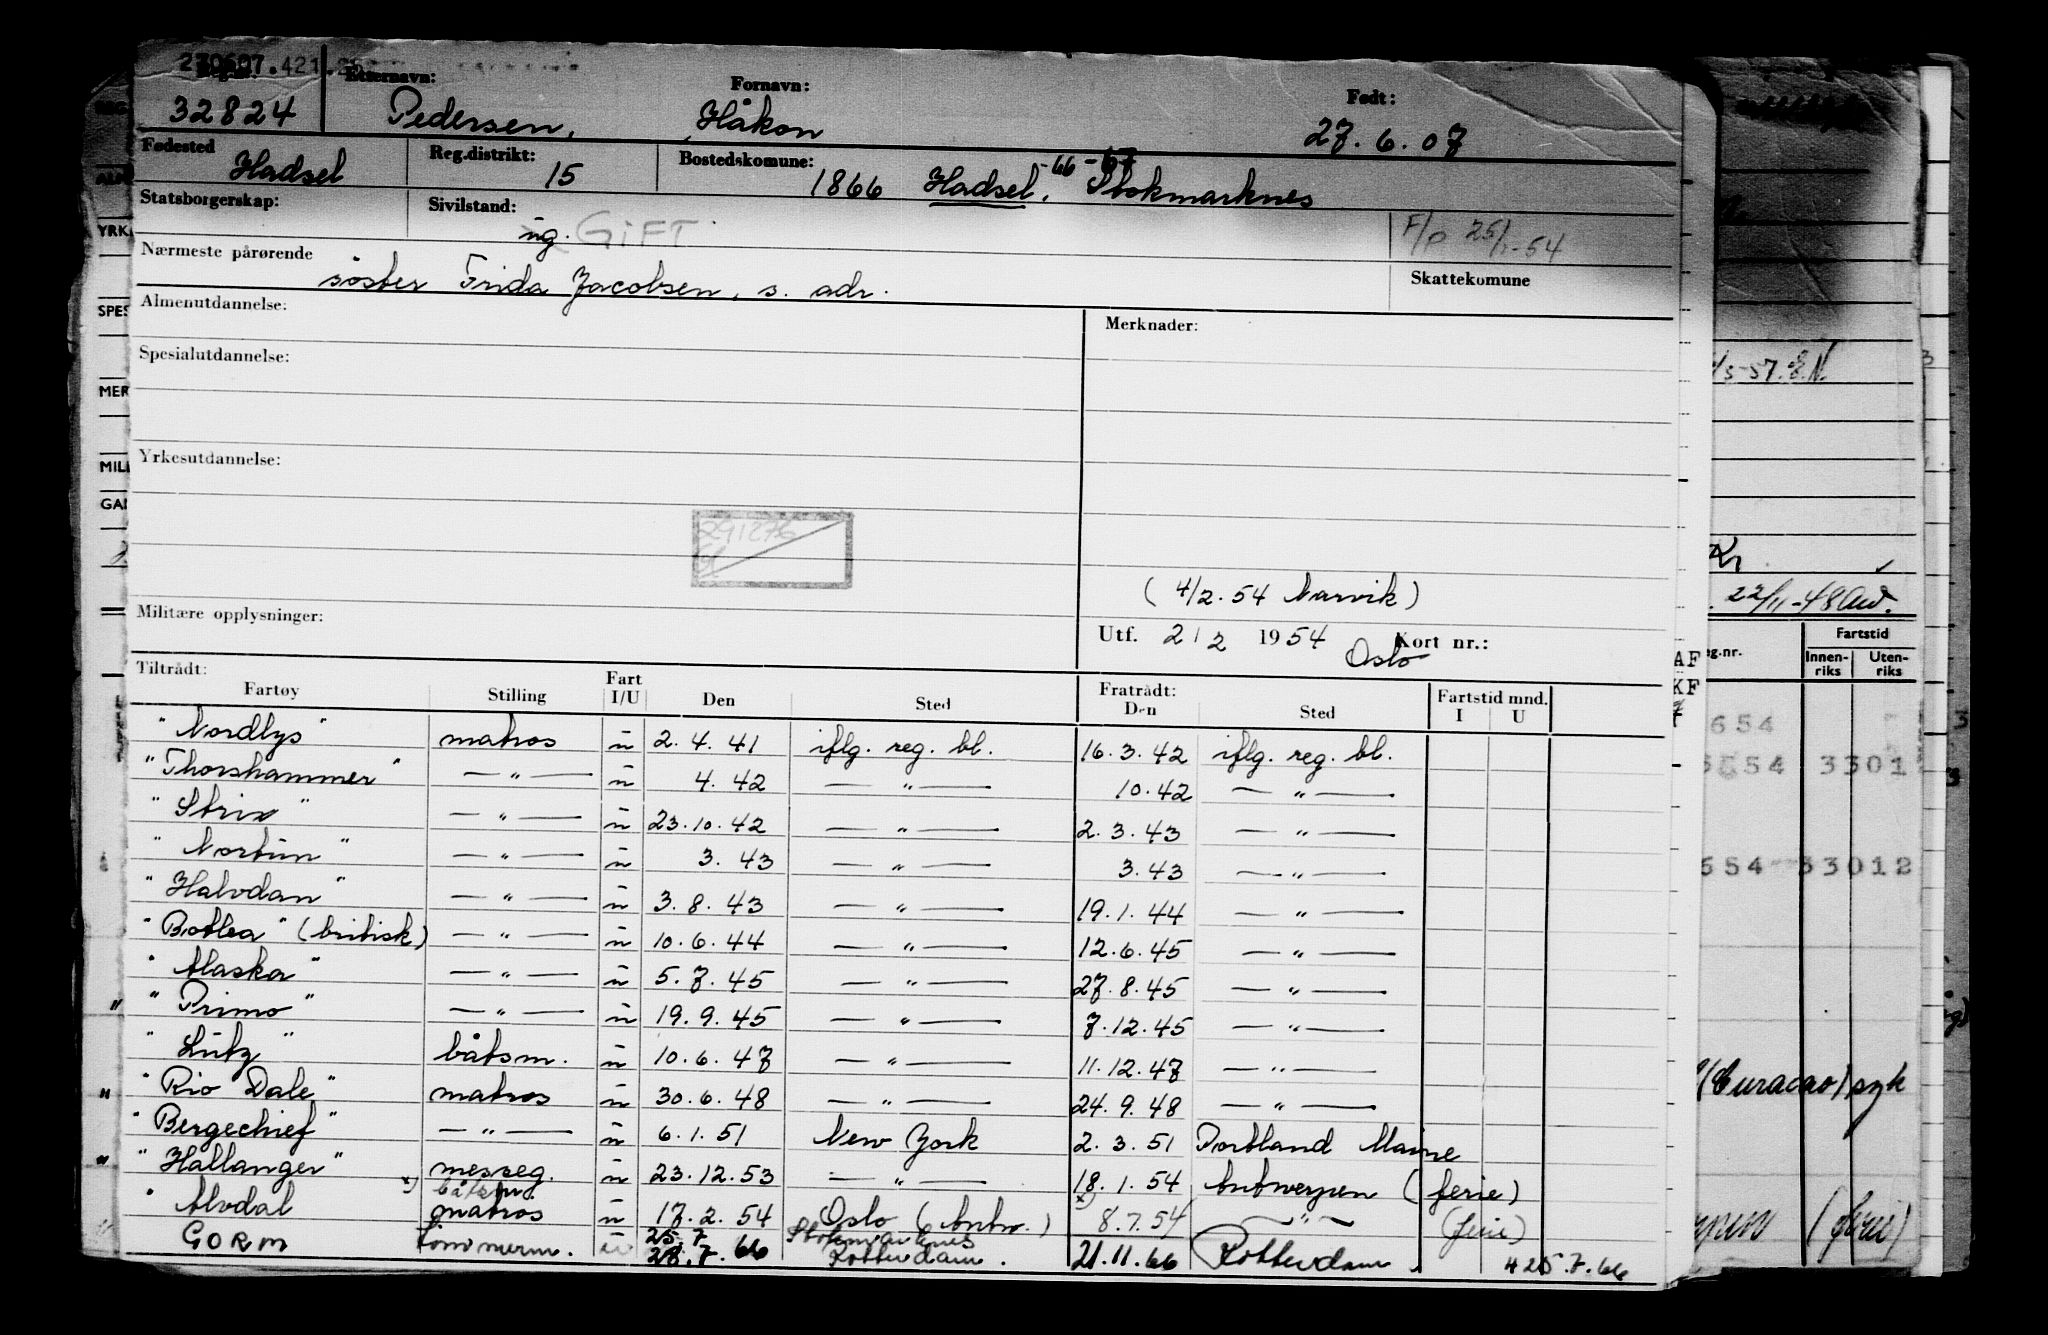 270607.421
Etternavn: Fornavn: Født:
32824 Pedersen, Håkon 27.6.07
Fødested Hadsel Reg.distrikt: 15 Bostedskomune: 1866 Hadsel, -66 -67 Stokmarknes
Statsborgerskap: Sivilstand: ug. GIFT F/P 25/1-54
Nærmeste pårørende søster Frida Jacobsen, s. adr. Skattekomune
Almenutdannelse: Merknader:
Spesialutdannelse:
Yrkesutdannelse:
291276
(4/2.54 Narvik)
Militære opplysninger: Utf. 2/2 1954 Oslo Kort nr.:
Tiltrådt: Fratrådt:
Fartøy Stilling Fart I/U Den Sted Den Sted Fartstid mnd. I U
"Nordlys" matros u 2.4.41 iflg. reg. bl. 16.3.42 iflg. reg. bl.
"Thorshammer" — " — u 4.42 — " — 10.42 — " —
"Strix" — " — u 23.10.42 — " — 2.3.43 — " —
"Nortun" — " — u 3.43 — " — 3.43 — " —
"Halvdan" — " — u 3.8.43 — " — 19.1.44 — " —
"Botlea" (britisk) — " — u 10.6.44 — " — 12.6.45 — " —
"Alaska" — " — u 5.7.45 — " — 27.8.45 — " —
"Primo" — " — u 19.9.45 — " — 7.12.45 — " —
"Lutz" båtsm. u 10.6.47 — " — 11.12.47 — " —
"Rio Dale" matros u 30.6.48 — " — 24.9.48 — " —
"Bergechief" — " — u 6.1.51 New York 2.3.51 Portland Maine
"Hallanger" messeg. u 23.12.53 — " — 18.1.54 Antwerpen (ferie)
x) båtsm. x)
" Alvdal matros u 17.2.54 Oslo (Antw.) 8.7.54 — " — (ferie)
25.7 Stokmarknes
GORM tømmerm. u 28.7.66 Rotterdam. 21.11.66 Rotterdam. 25.7.66
YRK
SPES
MER
MILI
GAN
/5-57. E.N.
22/11-48
Fartstid
g.nr. Innen-riks Uten-riks
AF
KF
654
3301
654 33012
(Curacao) syk
(ferie)